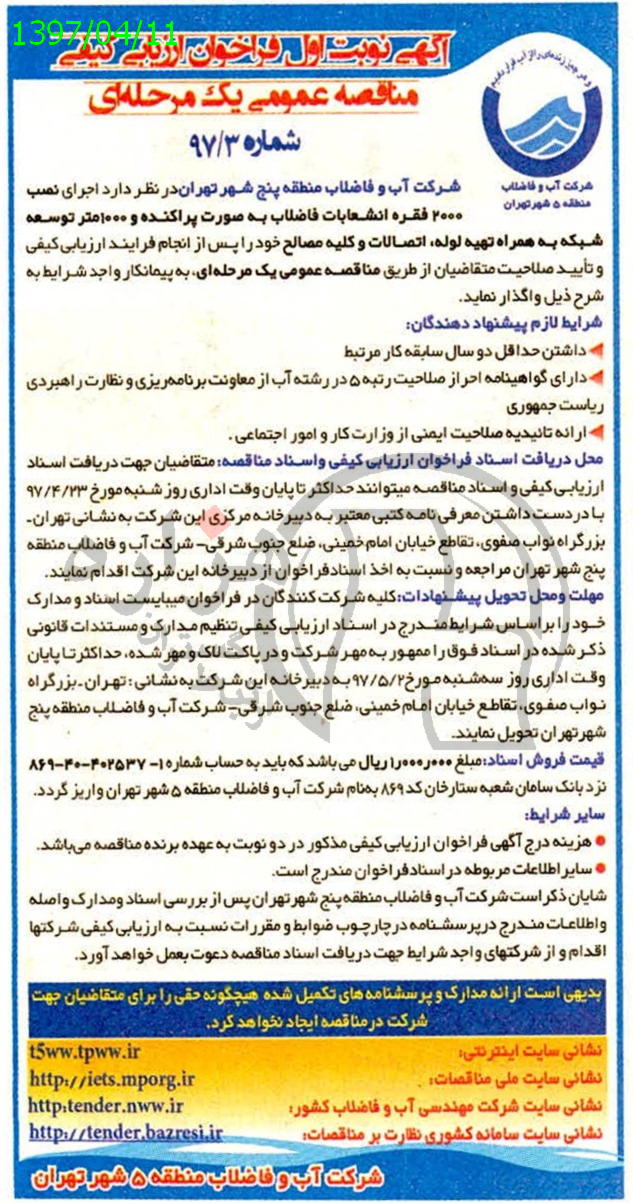 1397/04/11
آگهی نوبت اول فراخوان ارزیابی کیفی
مناقصه عمومی یک مرحله‌ای
شماره ۹۷/۳
و هر چیز زنده‌ای را از آب قرار دادیم
شرکت آب و فاضلاب
منطقه ۵ شهر تهران
شرکت آب و فاضلاب منطقه پنج شهر تهران در نظر دارد اجرای نصب
۲۰۰۰ فقره انشعابات فاضلاب به صورت پراکنده و ۱۰۰۰متر توسعه
شبکه به همراه تهیه لوله، اتصالات و کلیه مصالح خود را پس از انجام فرایند ارزیابی کیفی
و تأیید صلاحیت متقاضیان از طریق مناقصه عمومی یک مرحله‌ای، به پیمانکار واجد شرایط به
شرح ذیل واگذار نماید.
شرایط لازم پیشنهاد دهندگان:
داشتن حداقل دو سال سابقه کار مرتبط
دارای گواهینامه احراز صلاحیت رتبه ۵ در رشته آب از معاونت برنامه‌ریزی و نظارت راهبردی
ریاست جمهوری
ارائه تائیدیه صلاحیت ایمنی از وزارت کار و امور اجتماعی .
محل دریافت اسناد فراخوان ارزیابی کیفی و اسناد مناقصه: متقاضیان جهت دریافت اسناد
ارزیابی کیفی و اسناد مناقصه میتوانند حداکثر تا پایان وقت اداری روز شنبه مورخ ۹۷/۴/۲۳
با در دست داشتن معرفی نامه کتبی معتبر به دبیرخانه مرکزی این شرکت به نشانی تهران-
بزرگراه نواب صفوی، تقاطع خیابان امام خمینی، ضلع جنوب شرقی- شرکت آب و فاضلاب منطقه
پنج شهر تهران مراجعه و نسبت به اخذ اسناد فراخوان از دبیرخانه این شرکت اقدام نمایند.
مهلت و محل تحویل پیشنهادات: کلیه شرکت کنندگان در فراخوان میبایست اسناد و مدارک
خود را بر اساس شرایط مندرج در اسناد ارزیابی کیفی تنظیم مدارک و مستندات قانونی
ذکر شده در اسناد فوق را ممهور به مهر شرکت و در پاکت لاک و مهر شده، حداکثر تا پایان
وقت اداری روز سه‌شنبه مورخ ۹۷/۵/۲ به دبیرخانه این شرکت به نشانی : تهران - بزرگراه
نواب صفوی، تقاطع خیابان امام خمینی، ضلع جنوب شرقی- شرکت آب و فاضلاب منطقه پنج
شهر تهران تحویل نمایند.
قیمت فروش اسناد: مبلغ ۱٫۰۰۰٫۰۰۰ ریال می باشد که باید به حساب شماره ۱- ۴۰۲۵۳۷-۴۰-۸۶۹
نزد بانک سامان شعبه ستارخان کد ۸۶۹ به‌نام شرکت آب و فاضلاب منطقه ۵ شهر تهران واریز گردد.
سایر شرایط:
هزینه درج آگهی فراخوان ارزیابی کیفی مذکور در دو نوبت به عهده برنده مناقصه می‌باشد.
سایر اطلاعات مربوطه در اسناد فراخوان مندرج است.
شایان ذکر است شرکت آب و فاضلاب منطقه پنج شهر تهران پس از بررسی اسناد ومدارک واصله
و اطلاعات مندرج در پرسشنامه در چارچوب ضوابط و مقررات نسبت به ارزیابی کیفی شرکتها
اقدام و از شرکتهای واجد شرایط جهت دریافت اسناد مناقصه دعوت بعمل خواهد آورد.
بدیهی است ارائه مدارک و پرسشنامه های تکمیل شده هیچگونه حقی را برای متقاضیان جهت
شرکت در مناقصه ایجاد نخواهد کرد.
نشانی سایت اینترنتی: t5ww.tpww.ir
نشانی سایت ملی مناقصات: http://iets.mporg.ir
نشانی سایت شرکت مهندسی آب و فاضلاب کشور: http:tender.nww.ir
نشانی سایت سامانه کشوری نظارت بر مناقصات: http://tender.bazresi.ir
شرکت آب و فاضلاب منطقه ۵ شهر تهران